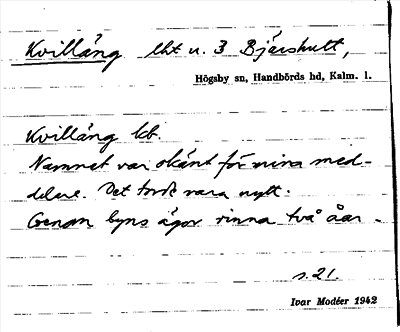 Kvilläng lht u. 3 Bjärshult,
Högsby sn, Handbörds hd, Kalm. l.
Kvilläng kb.
Namnet var okänt för mina med-
delare. Det torde vara nytt.
Genom byns ägor rinna två åar.
s. 21.
Ivar Modéer 1942